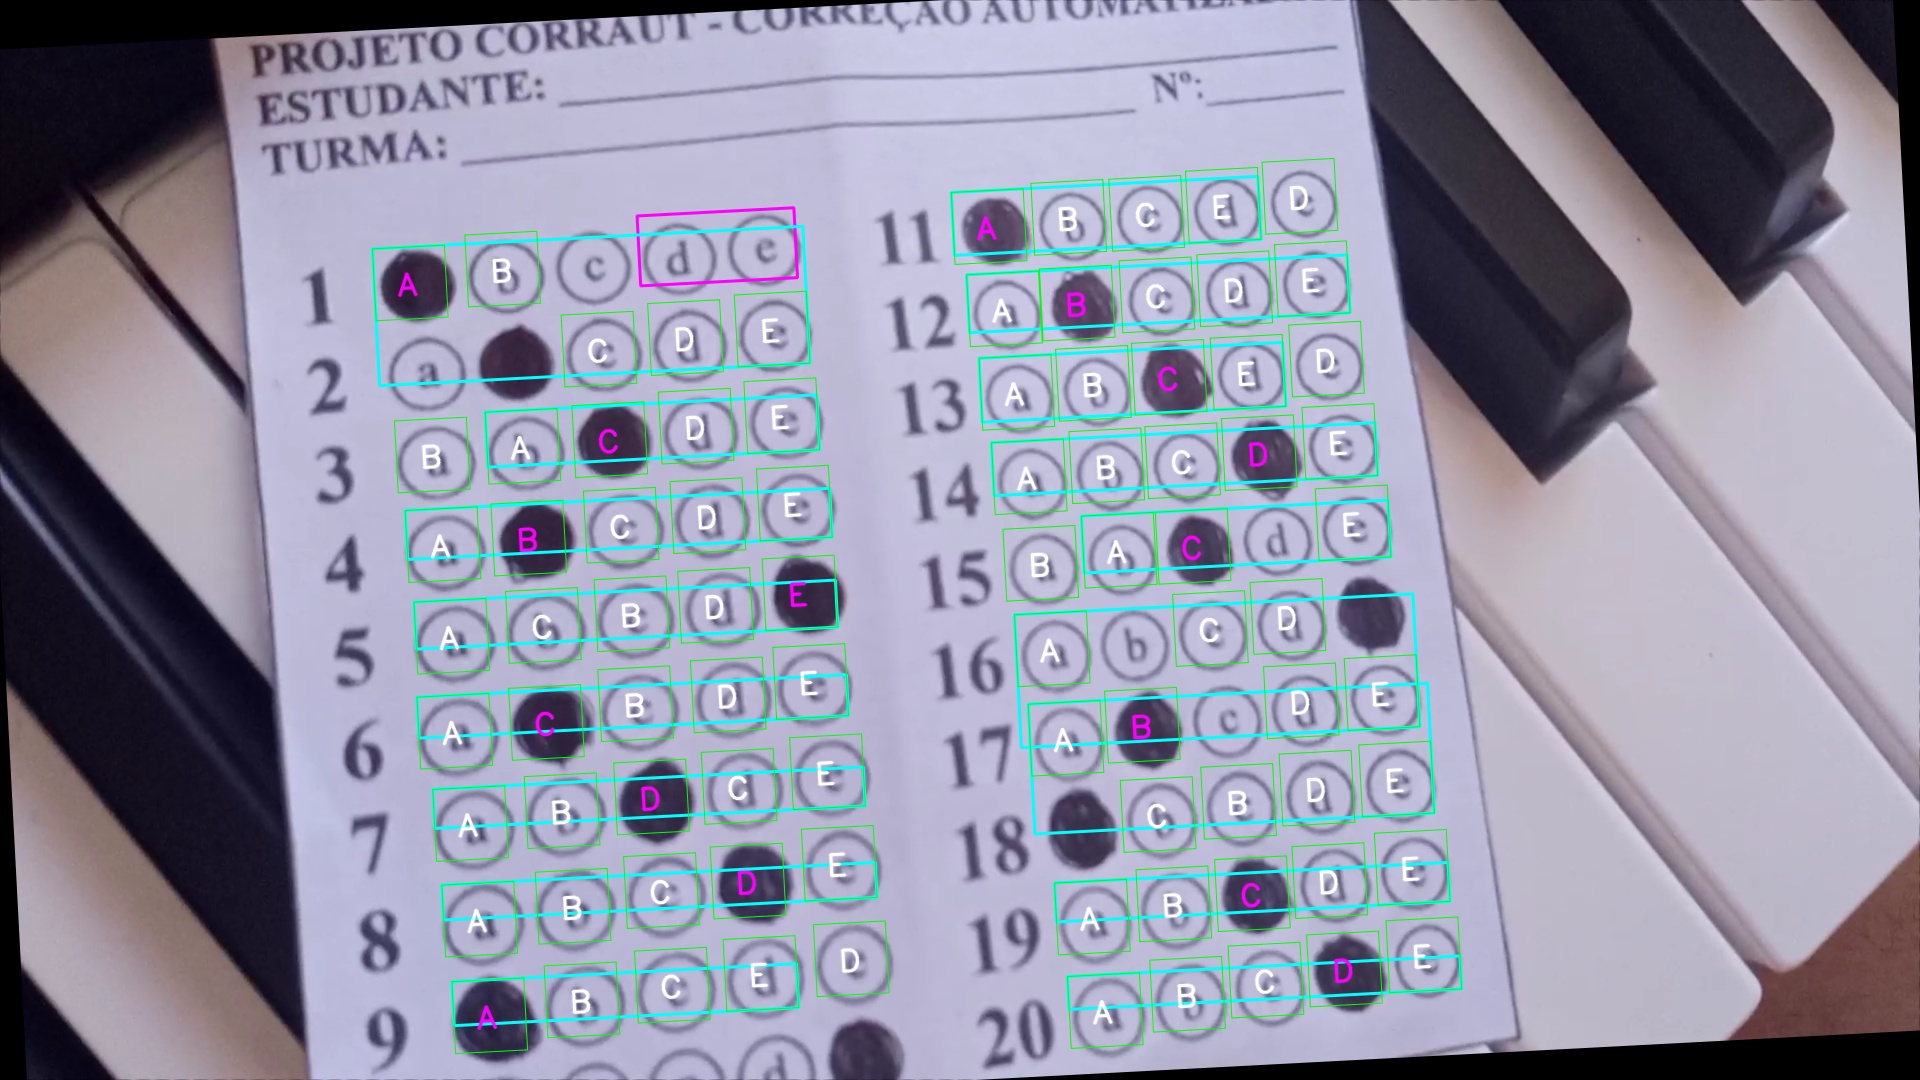 PROJETO CORRAUT - CORREÇÃO
ESTUDANTE:
Nº:
TURMA:
1 A B c d e
2 a C D E
3 B A C D E
4 A B C D E
5 A C B D E
6 A C B D E
7 A B D C E
8 A B C D E
9 A B C E D
d
11 A B C E D
12 A B C D E
13 A B C E D
14 A B C D E
15 B A C d E
16 A b C D
17 A B c D E
18 C B D E
19 A B C D E
20 A B C D E